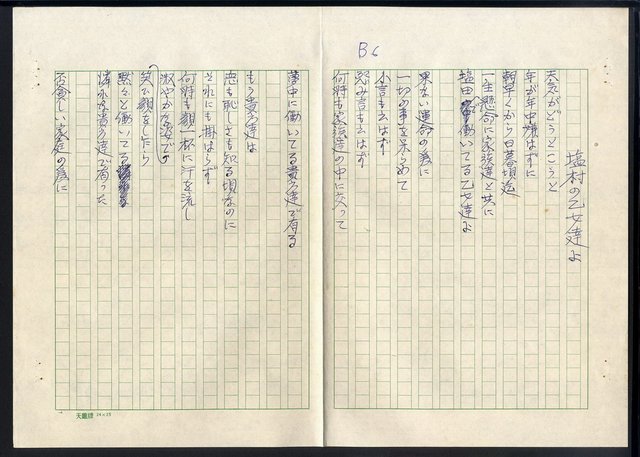 B6
塩村の乙女達よ
天気がどうとこうと
年が年中嫌はずに
朝早くから日暮頃迄
一生懸命に家族達と共に
塩田で働いてる乙女達よ
果ない運命の為に
一切の事を諦らめて
小言も云はず
怨み言も云はず
何時も家族達の中に交って
夢中に働いてる貴方達で有る
もう貴方達は
恋も恥しさも知る頃なのに
それにも拘はらず
何時も顔一杯に汗を流し
淑やかな姿で
笑ひ顔をしたり
黙々と働いてる
憐れな貴方達で有った
貧しい家庭の為に
天龍牌 24×25